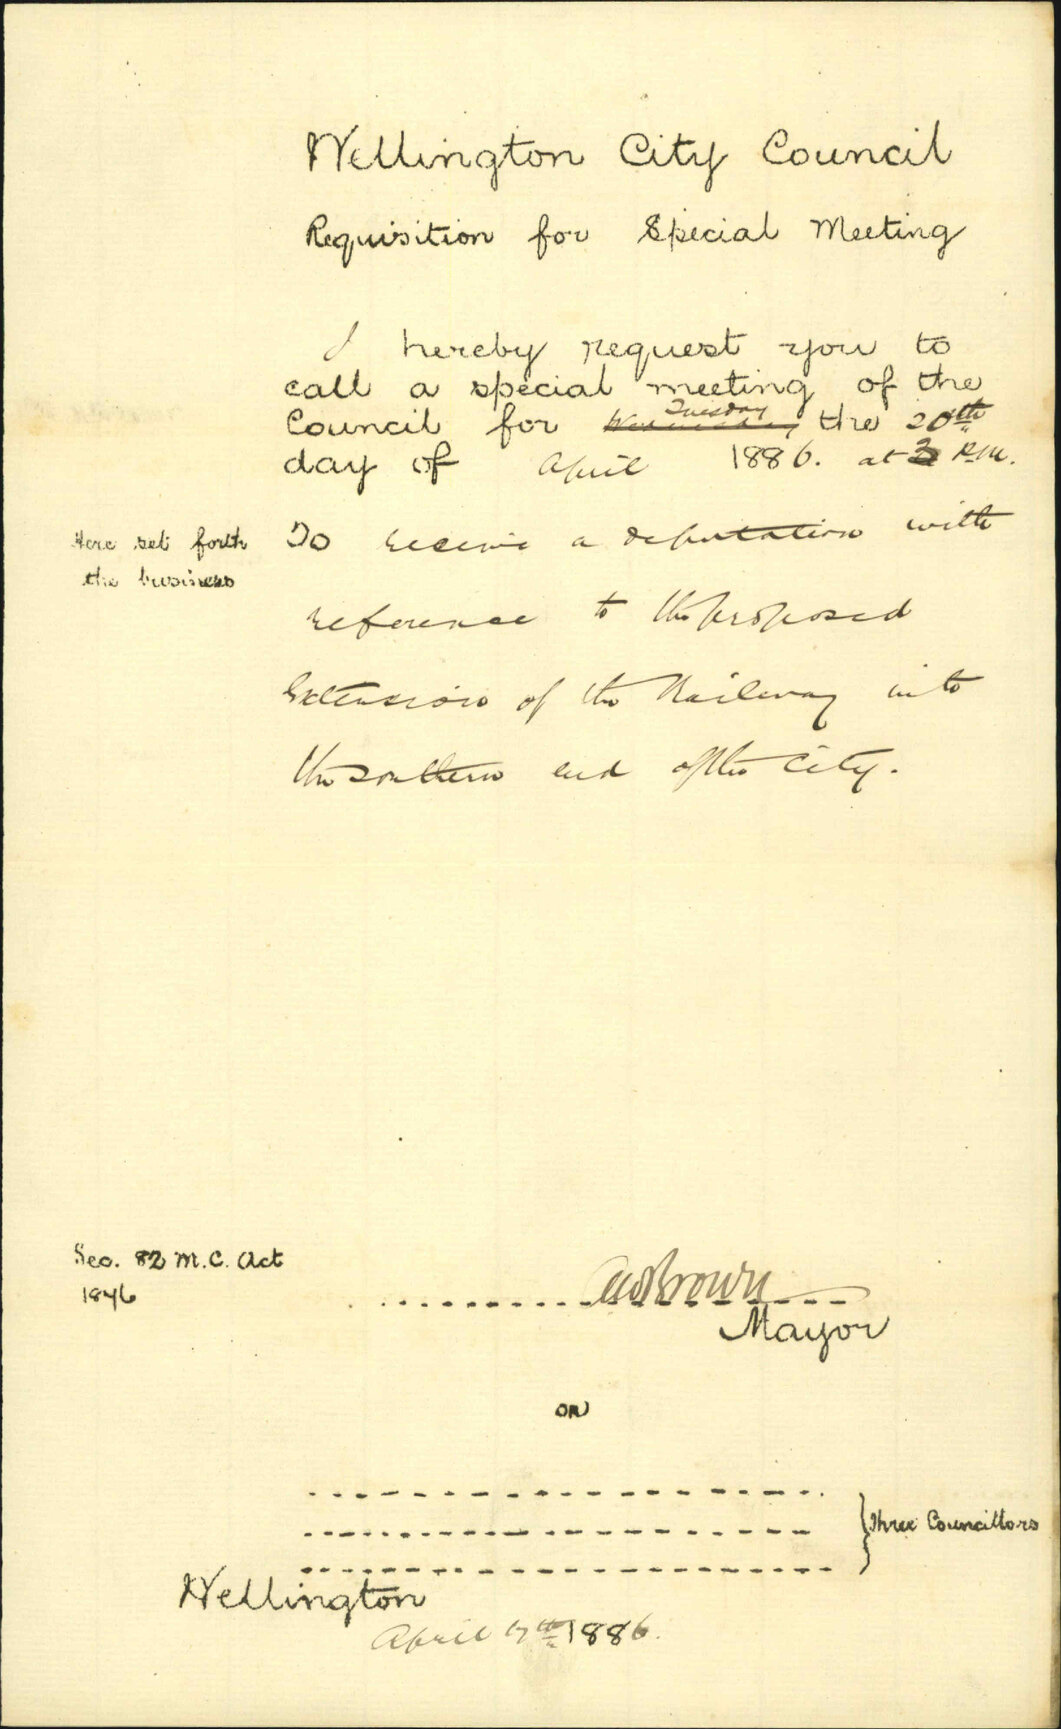 Wellington City Council
Requisition for Special Meeting
I hereby request you to
call a special meeting of the
Council for Wednesday Tuesday the 20th
day of April 1886. at 3 P.M.
Here set forth
the business
To receive a deputation with
reference to the proposed
Extension of the Railway into
the southern end of the City.
Sec. 82 M.C. Act
1876
Brown
Mayor
OR
Three Councillors
Wellington
April 17th 1886.